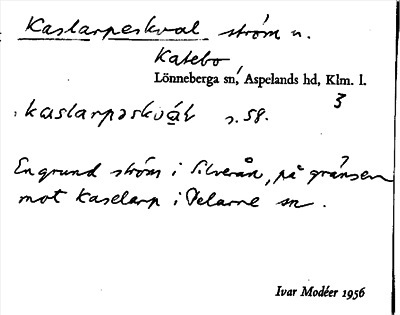 Kaslarpeskval ström n.
Katebo
Lönneberga sn, Aspelands hd, Klm. l.
3
kaslarpəskvɑ̀l s. 58.
En grund ström i Silverån, på gränsen
mot Kaselarp i Pelarne sn.
Ivar Modéer 1956